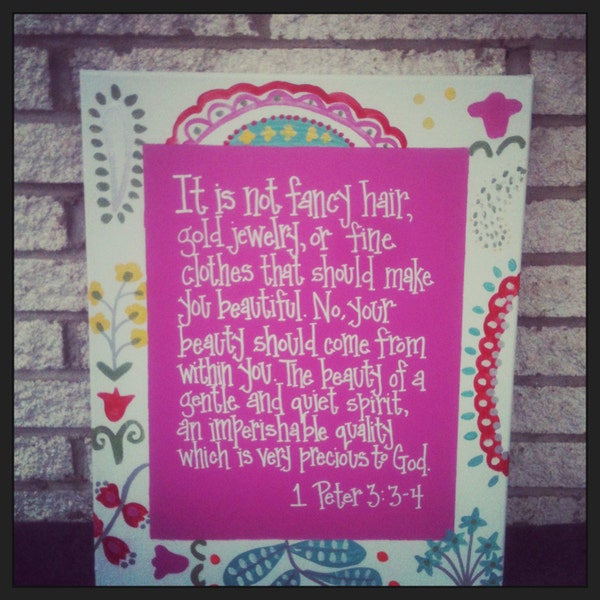 It is not fancy hair,
gold jewelry, or fine
clothes that should make
you beautiful. No, your
beauty should come from
within you. The beauty of a
gentle and quiet spirit,
an imperishable quality
which is very precious to God.
1 Peter 3:3-4